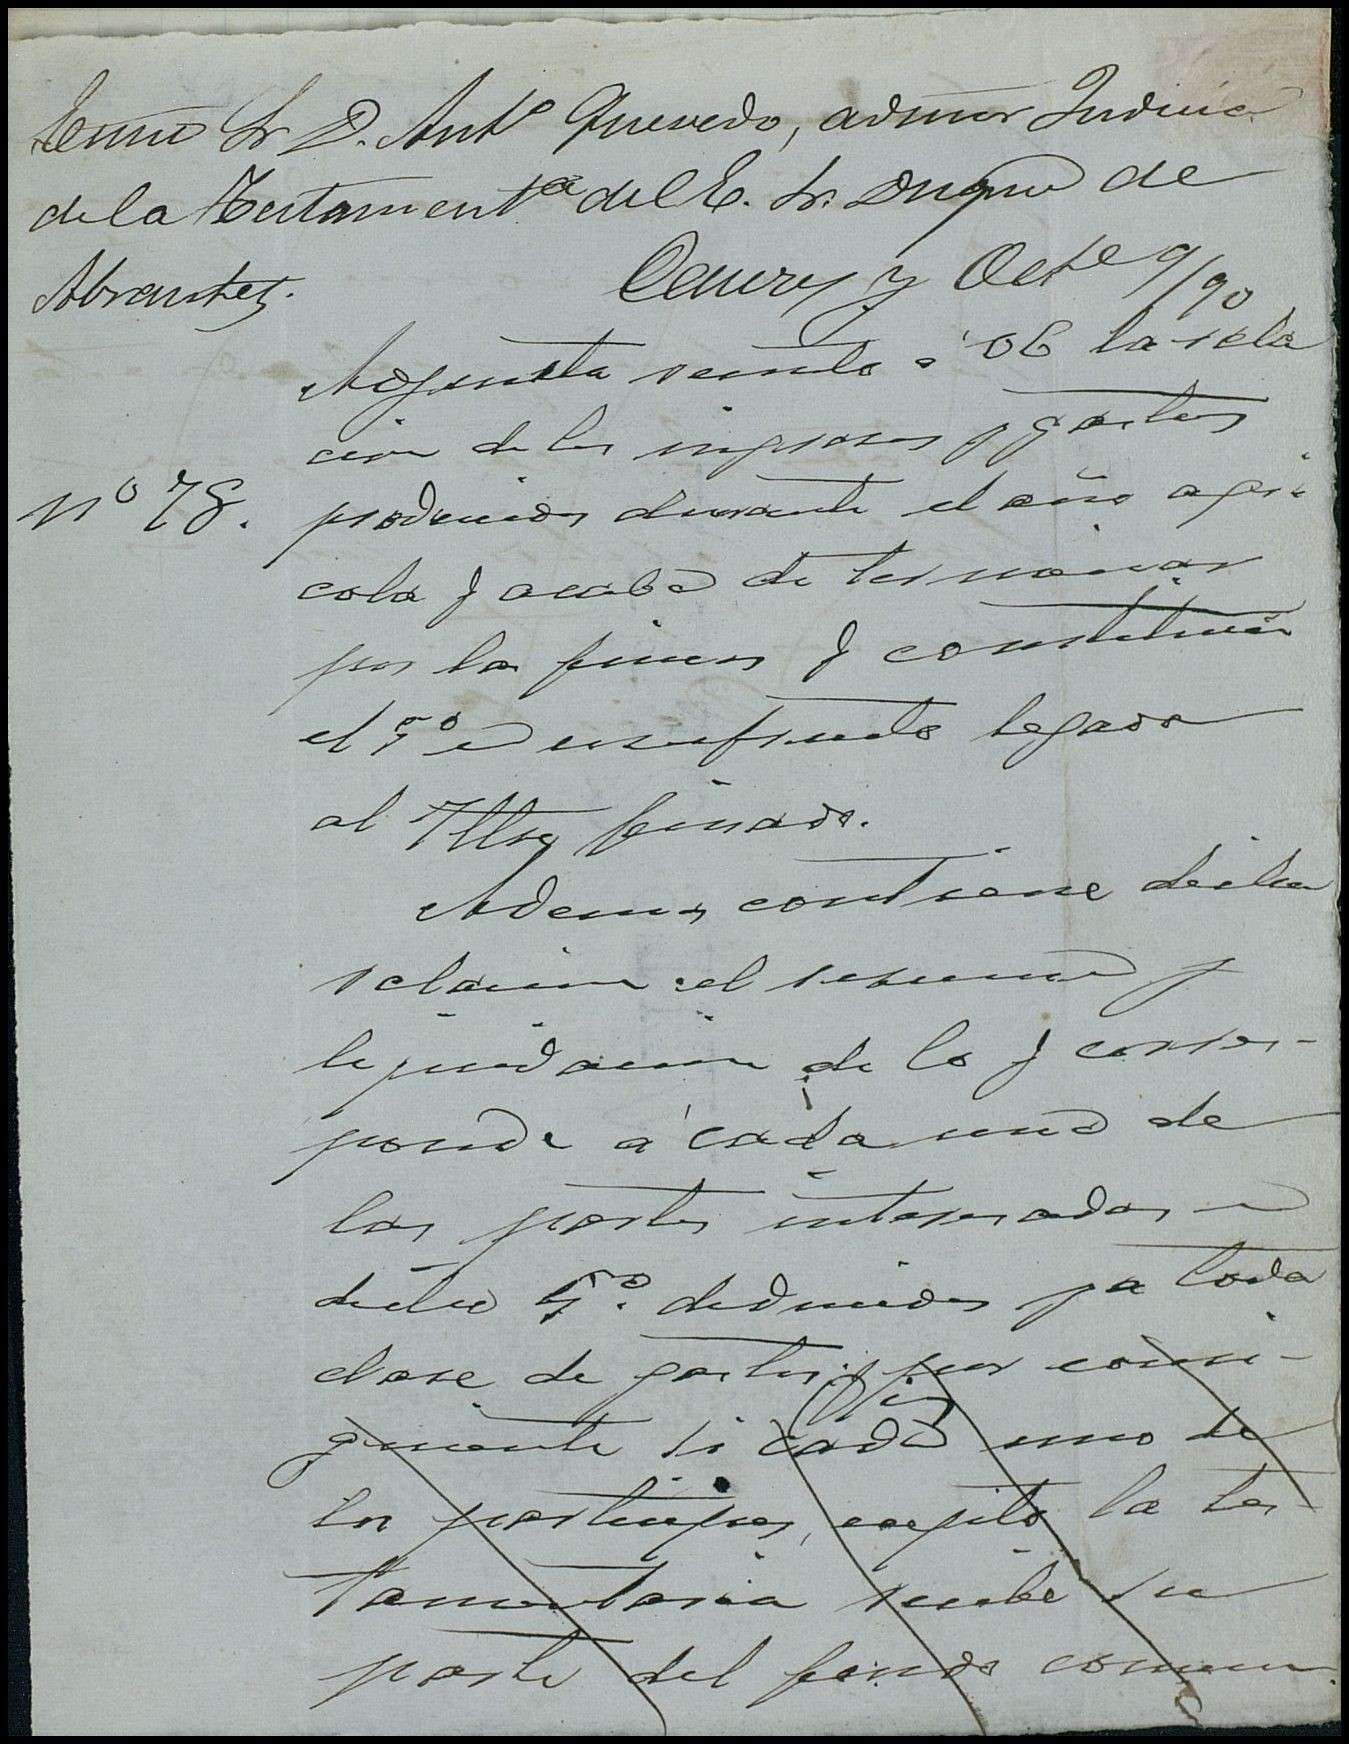 Exmo Sr D. Anto Quevedo, admor Judicial
de la Testamenta del E. Sr. Duque de
Abrantes.
y Octe 9/90
Adjunta remito á la rela
cion de los ingresos y gastos
Nº 78.
producidos durante el año agri
cola q acaba de terminar
por las fincas q constituian
el 5º en usufructo legado
al finado.
Ademas contiene dicha
relacion el resumen y
liquidacion de lo q corres-
ponde á cada uno de
los partes interesadas en
dicho 5º. deducidos ya toda
clase de gastos, y por consi-
guiente si cada uno de
los participes, cepto la tes
tamentaria recibe su
parte del fondo comun